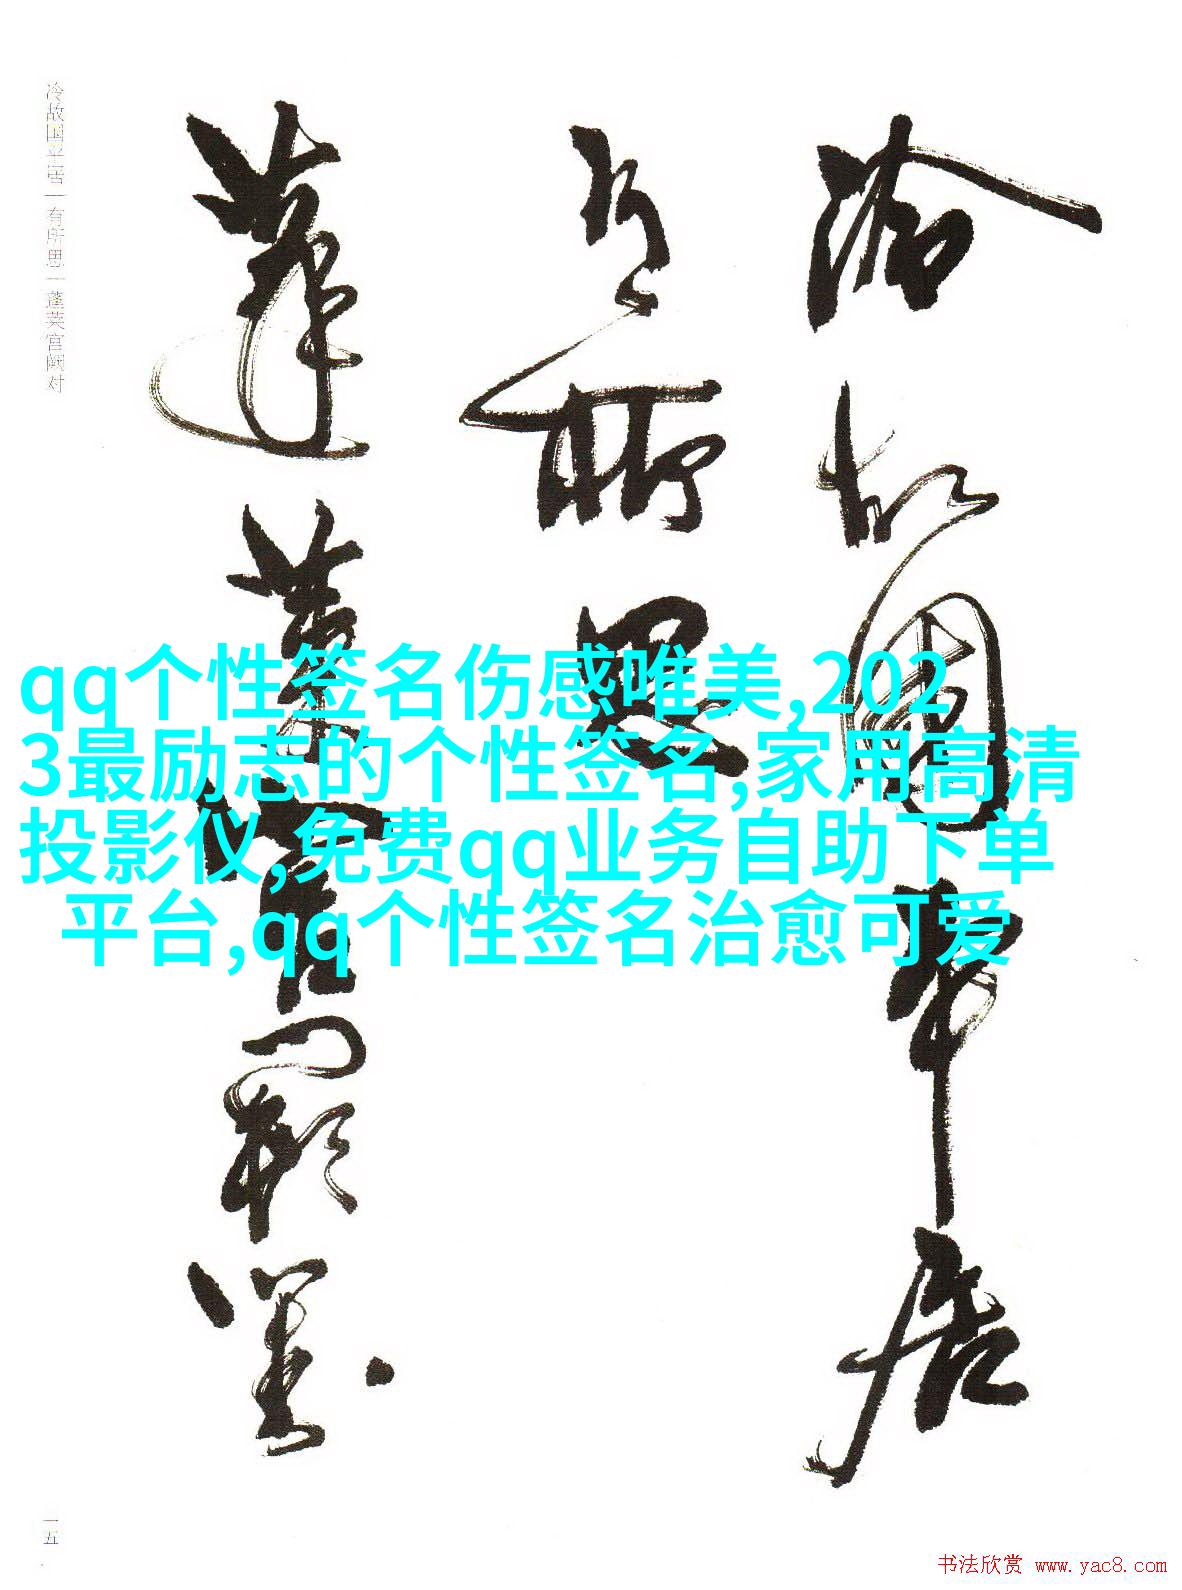 冷故国平居
有所思
蓬莱宫阙对
冷故国平居|有所思|蓬莱宫阙对
qq个性签名伤感唯美,202
3最励志的个性签名,家用高清
投影仪,免费qq业务自助下单
平台,qq个性签名治愈可爱
一五
书法欣赏 www.yac8.com